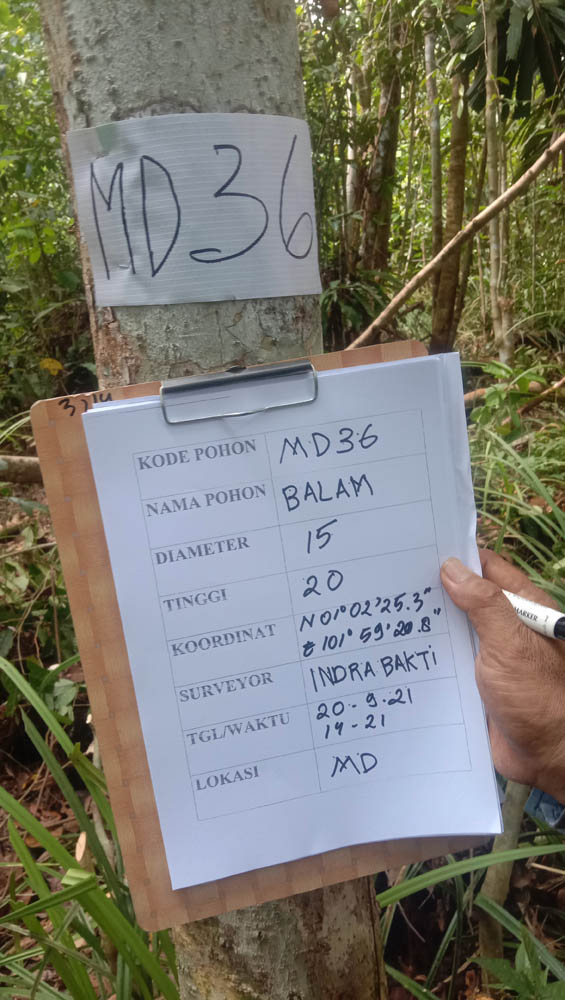 MD36
KODE POHON MD36
NAMA POHON BALAM
DIAMETER 15
TINGGI 20
KOORDINAT N 01° 02' 25.3"
E 101° 59' 20.8"
SURVEYOR INDRA BAKTI
TGL/WAKTU 20-9-21
14-21
LOKASI MD
MARKER